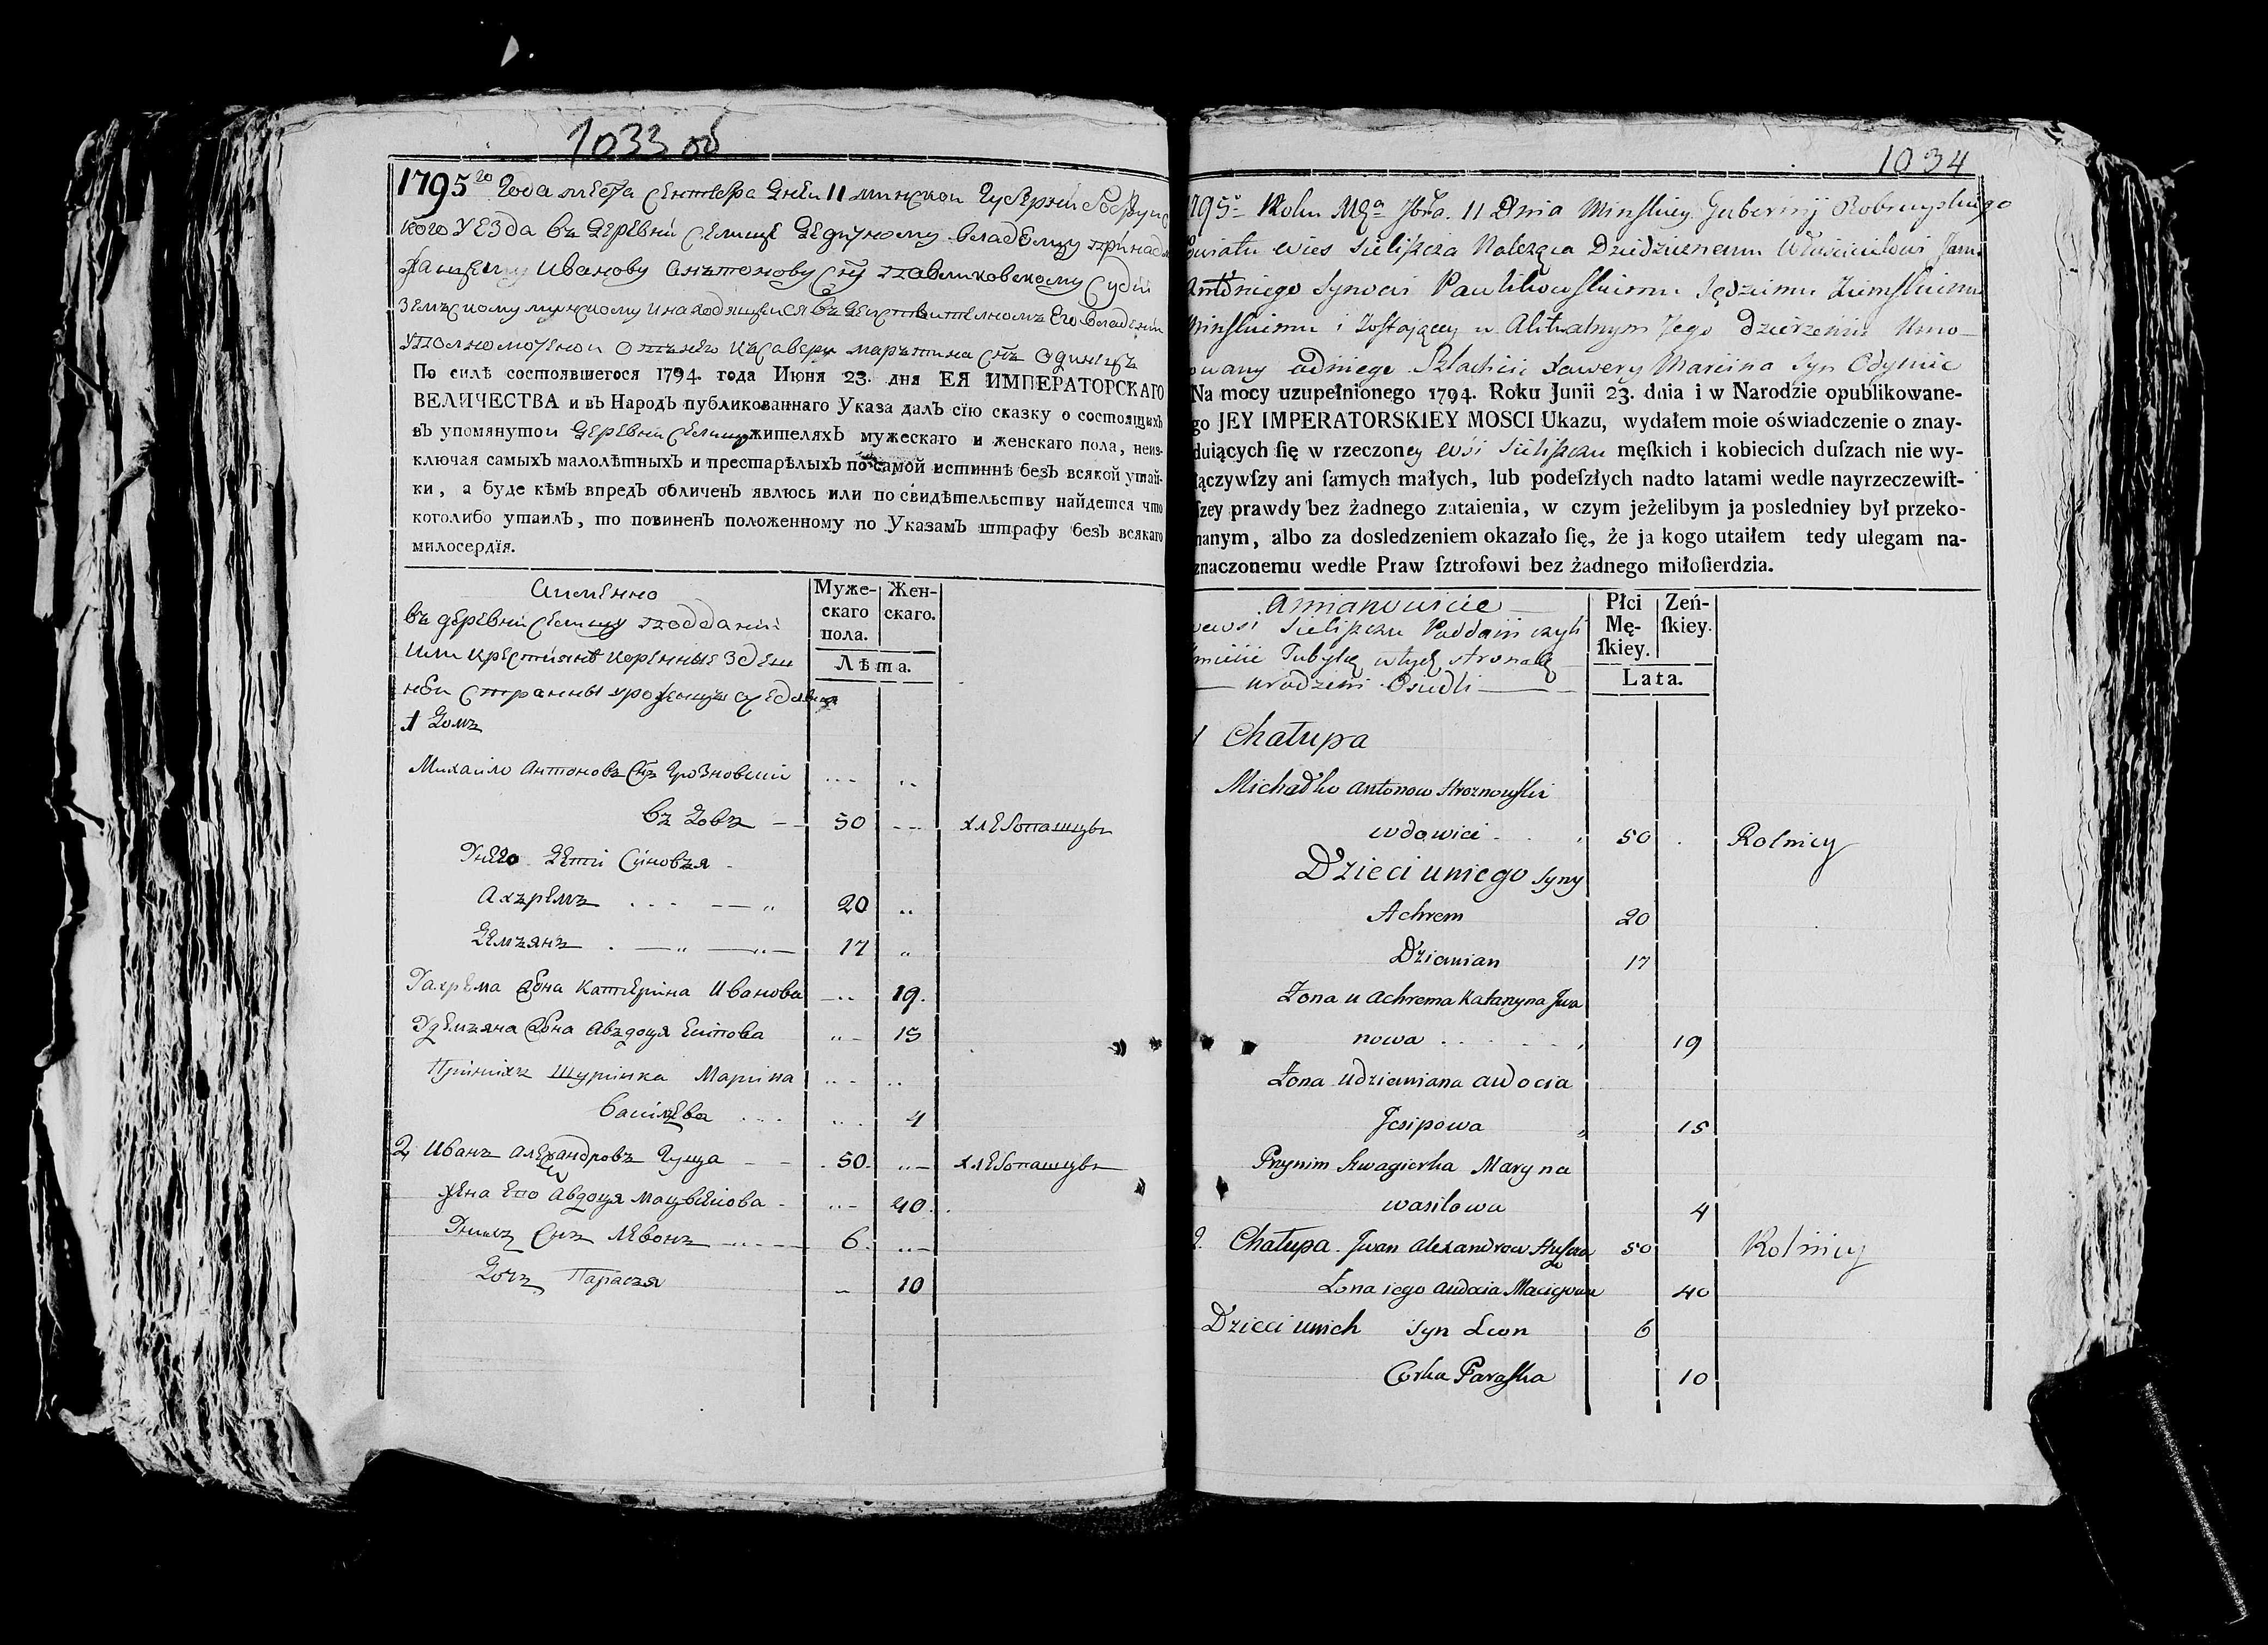 1033 об
1795го Года месеца сентебра дней 11 минской Губернии Бобруйс
кого Уезда въ деревни селище дедичному владельцу принадл
жащему Иванову Анътонову сну Павликовскому Судии
земскому минскому и находящейся въ действителномъ его владении
уполномоченой отънего Ксаверы марътина снъ Одинецъ
По силѣ состоявшегося 1794. года Июня 23. дня ЕЯ ИМПЕРАТОРСКАГО
ВЕЛИЧЕСТВА и въ Народъ публикованнаго Указа далъ сїю сказку о состоящихъ
въ упомянутои деревни селищу жителяхъ мужескаго и женскаго пола, неиз-
ключая самыхъ малолѣтныхъ и престарѣлыхъ по самой истиннѣ безъ всякой утай-
ки, а буде кѣмъ впредъ обличенъ явлюсь или по свидѣтельству найдется что
коголибо утаилъ, то повиненъ положенному по Указамъ штрафу безъ всякаго
милосердїя.
Аименно
въ деревни селищу подданий
или крестиянѣ коренные здеш
ней страны
Муже-
скаго
пола.
Жен-
скаго.
Лѣта.
1 Домъ
Михаило Антоновъ Снъ Грозновский
въ довъ 50 хлебопашцы
Унего дети Синовья
Ахъремъ 20
Демъянъ 17
Уахрема Жона Катерина Иванова 19.
Удемъяна Жона Авъдоця Есипова 15
Приимъ Шуринка Марина
Василева 4
2 Иванъ Александровъ Гуща 50. хлебопашцы
жена его Авдоця Мацвеиова 40
Унихъ Снъ Левонъ 6.
Дочъ Парасъя 10
1034
1795o Roku Mca 7bra. 11 Dnia Minskiey Gubernij Bobruyskiego
Powiatu wies Sieliszcza Należąca Dziedzicznemu Właścicielowi Janu
Antoniego Synowi Pawlikowskiemu Sędziemu Ziemskiemu
Minskiemu i Zostaiącey w Aktualnym Jego Dzierżeniu Umo-
cowany odniego Szlachcic Xawery Marcina Syn Odyniec
Na mocy uzupełnionego 1794. Roku Junii 23. dnia i w Narodzie opublikowane-
go JEY IMPERATORSKIEY MOSCI Ukazu, wydałem moie oświadczenie o znay-
duiących ſię w rzeczoney wsi Sieliszczu męſkich i kobiecich duſzach nie wy-
łączywſzy ani ſamych małych, lub podeſzłych nadto latami wedle nayrzeczewiſt-
ſzey prawdy bez żadnego zataienia, w czym jeżelibym ja posledniey był przeko-
nanym, albo za dosledzeniem okazało ſię, że ja kogo utaiłem tedy ulegam na-
znaczonemu wedle Praw ſztrofowi bez żadnego miłoſierdzia.
Amianowicie
wewsi Sieliszczu Poddani czyli
Kmiecie Tubylcy wtych stronach
urodzeni Osiedli
Płci
Mę-
ſkiey.
Zeń-
ſkiey.
Lata.
1 Chałupa
Michadko Antonow Hroznowski
wdowiec 50 Rolnicy
Dzieci uniego Syny
Achrem 20
Dziemian 17
Żona u Achrema Katarzyna Jwa
nowa 19
Żona udziemiana Awdocia
Jesipowa 15
Przyim Szwagierka Maryna
Wasilowa 4
2. Chałupa. Jwan Alexandrow Huszcza 50 Rolnicy
Żona iego Audocia Maciejowa 40
Dzieci unich Syn Leon 6
Corka Paraska 10